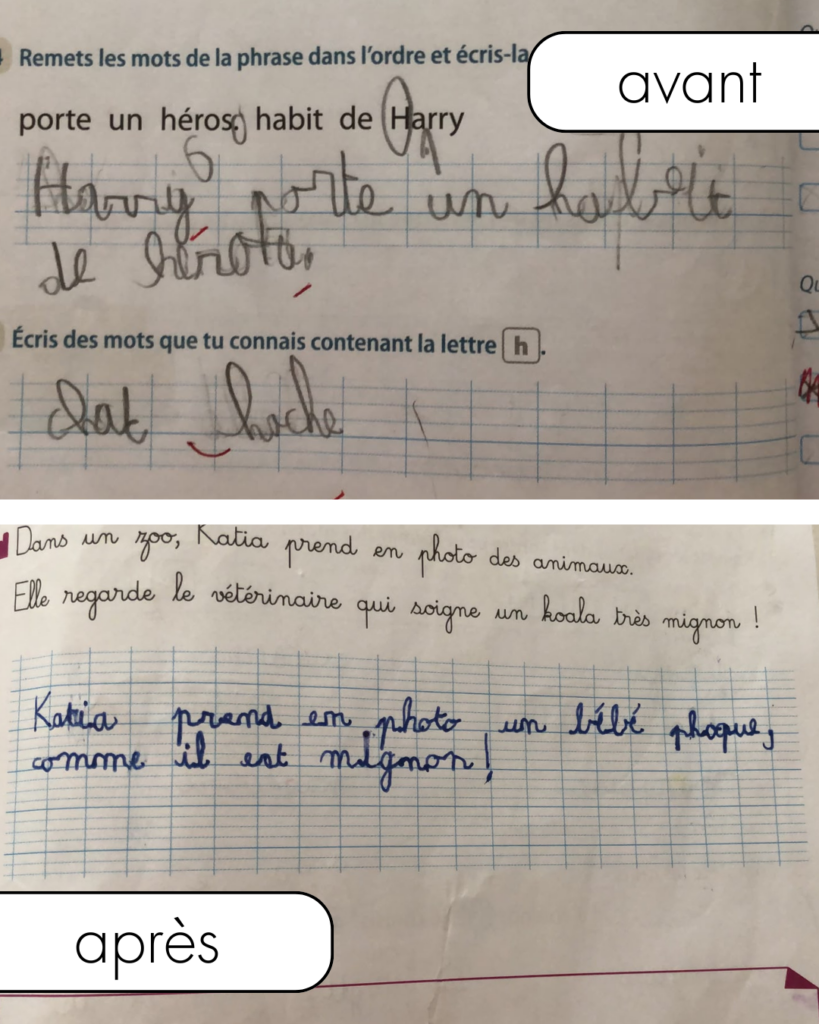 Remets les mots de la phrase dans l'ordre et écris-la
avant
porte un héros. habit de Harry
Harry porte un habit
de
Écris des mots que tu connais contenant la lettre h.
hoche
Dans un zoo, Katia prend en photo des animaux.
Elle regarde le vétérinaire qui soigne un koala très mignon !
Katia prend en photo un bébé phoque,
comme il est mignon !
après